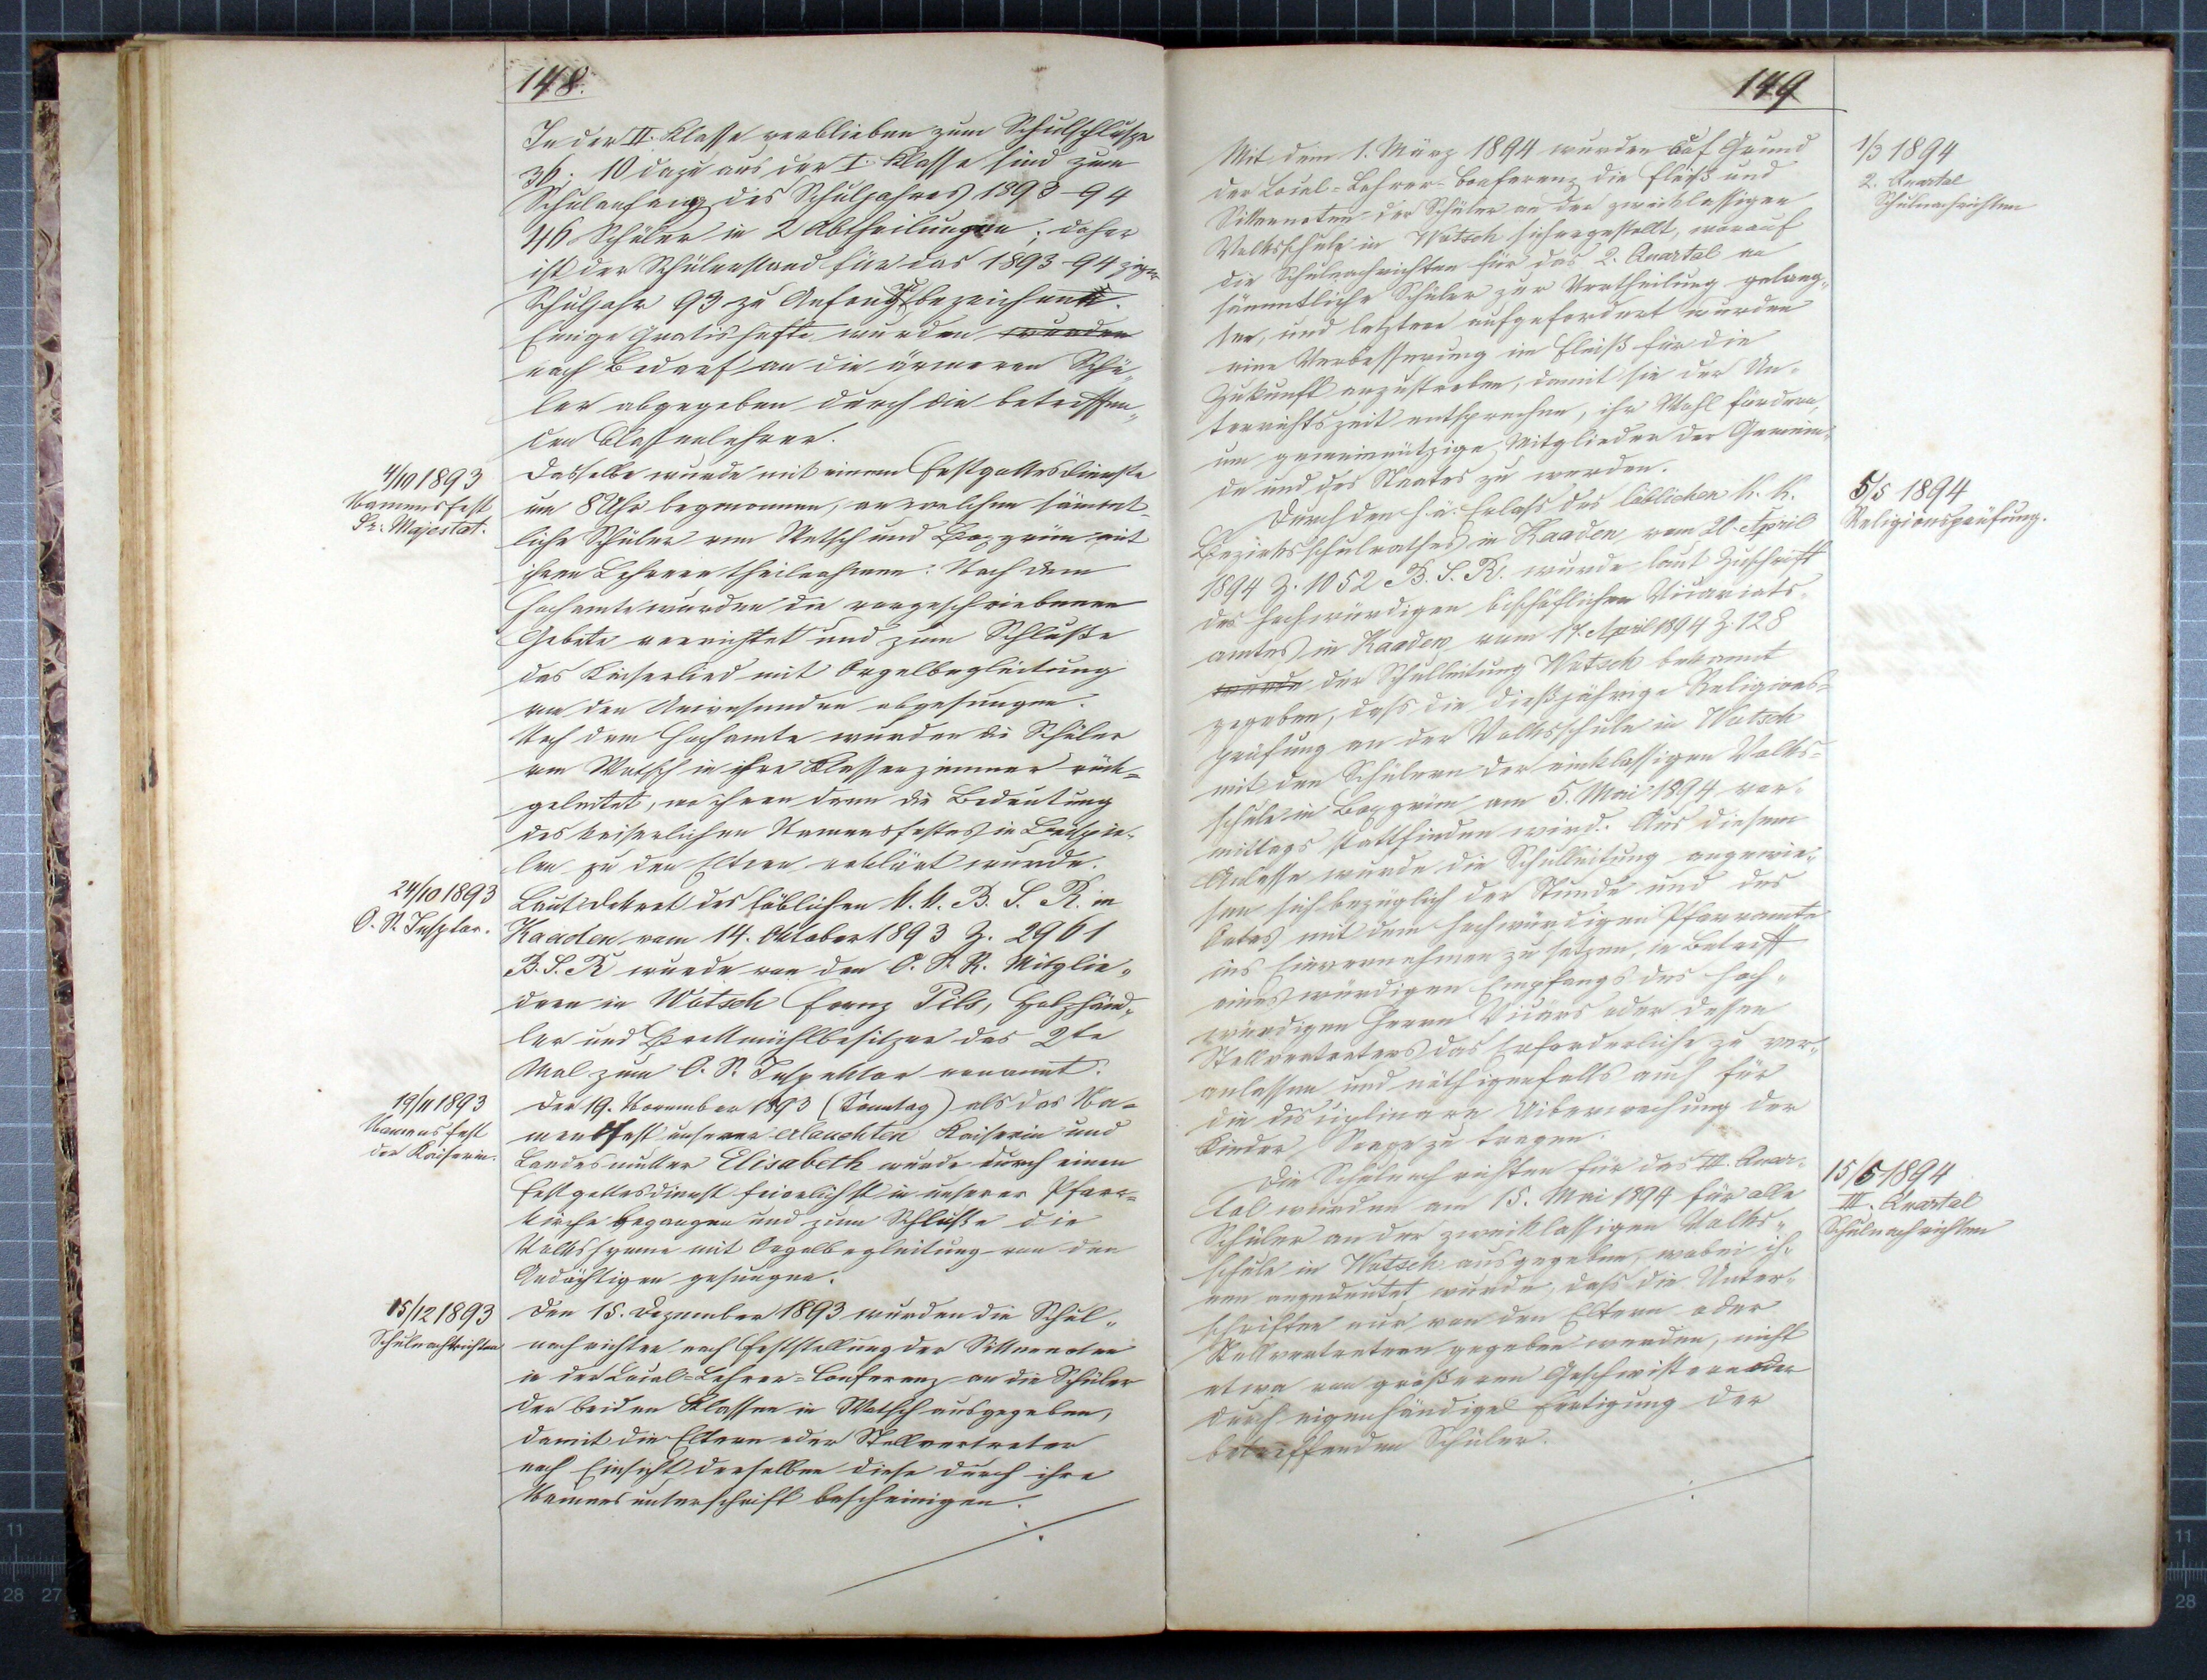 148.
In der II. Klasse verblieben zum Schulschluße
36; 10 dazu aus der I. Klasse sind zum
Schulanfang des Schuljahres 1893-94
46 Schüler in 2 Abtheilungen; daher
ist der Schülerstand für das 1893-94
Schuljahr 93 zu Anfang bezeichnet.
Einige Gratishefte wurden wurden
nach Bedarf an die ärmeren Schü-
ler abgegeben durch die betreffen-
den Classenlehrer.
4/10 1893
Namensfest
Sr. Majestat.
Dasselbe wurde mit einem Festgottesdienste
um 8 Uhr begonnen, an welchem sämmt-
liche Schüler von Wotsch und Boxgrün mit
ihren Lehrern theilnahmen. Nach dem
Hochamte wurden die vorgeschriebenen
Gebete verrichtet und zum Schluße
das Kaiserlied mit Orgelbegleitung
von den Anwesenden abgesungen.
Nach dem Hochamte wurden die Schüler
von Wotsch in ihre Klassenzimmer rück-
geleitet, wo ihnen dann die Bedeutung
des kaiserlichen Namensfestes in Beispie-
len zu den Eltern erklärt wurde.
24/10 1893
O. S. Insptor.
Laut Dekret des löblichen k. k. B. S. R. in
Kaaden vom 14. Oktober 1893 Z. 2961
B. S. R wurde von den O. S. R. Mitglie-
dern in Wotsch Franz Pilz, Holzhänd-
ler und Brettmühlbesitzer das 2te
Mal zum O. S. Inspektor ernannt.
19/11 1893
Namensfest
der Kaiserin.
Der 19. November 1893 (Sonntag) als das Na-
mensfest unserer erlauchten Kaiserin und
Landesmutter Elisabeth wurde durch einen
Festgottesdienst feierlichst in unserer Pfarr-
kirche begangen und zum Schluße die
Volkshymne mit Orgelbegleitung von den
Andächtigen gesungen.
15/12 1893
Schulnachrichten
Den 15. Dezember 1893 wurden die Schul-
nachrichten nach Feststellung der Sittennoten
in der Local-Lehrer-Conferenz an die Schüler
der beiden Klassen in Wotsch ausgegeben,
damit die Eltern oder Stellvertreter
nach Einsicht derselben diese durch ihre
Namensunterschrift bescheinigen.
149
1/3 1894
2. Quartal
Schulnachrichten
Mit dem 1. März 1894 wurden auf Grund
der Local-Lehrer-Conferenz die Fleiß und
Sittennoten der Schüler an der zweiklassigen
Volksschule in Wotsch sichergestellt, worauf
die Schulnachrichten für das 2. Quartal an
sämmtliche Schüler zur Vertheilung gelang-
ten, und letztere aufgefordert wurden
eine Verbesserung im Fleiß für die
Zukunft anzustreben, damit sie der Un-
terrichtszeit entsprechen, ihr Wohl fördern,
um gemeinnützige Mitglieder der Gemein-
de und des Staates zu werden.
5/5 1894
Religionsprüfung.
Durch den h. ä. Erlaß des löblichen k. k.
Bezirksschulrathes in Kaaden vom 20. April
1894 Z. 1052 B. S. R. wurde laut Zuschrift
des hochwürdigen bischöflichen Vicariats-
amtes in Kaaden vom 17. April 1894 Z. 128
wurde der Schulleitung Wotsch bekannt
gegeben, daß die dießjährige Religions-
prüfung an der Volksschule in Wotsch
mit den Schülern der einklassigen Volks-
schule in Boxgrün am 5. Mai 1894 vor-
mittags stattfinden wird. Aus diesem
Anlasse wurde die Schulleitung angewie-
sen sich bezüglich der Stunde und des
Ortes mit dem hochwürdigen Pfarramte
ins Einvernehmen zu setzen, in Betreff
eines würdigen Empfangs des hoch-
würdigen Herrn Vicärs oder dessen
Stellvertreters das Erforderliche zu ver-
anlassen und nöthigenfalls auch für
die disciplinare Überwachung der
Kinder Sorge zu tragen.
15/5 1894
III. Quartal
Schulnachrichten
Die Schulnachrichten für das III. Quar-
tal wurden am 15. Mai 1894 für alle
Schüler an der zweiklassigen Volks-
schule in Wotsch ausgegeben, wobei ih-
nen angedeutet wurde, daß die Unter-
schriften nur von den Eltern oder
Stellvertretern gegeben werden, nicht
etwa von größeren Geschwistern oder
durch eigenhändige Fertigung der
betreffenden Schüler.
11
28 27
11
28